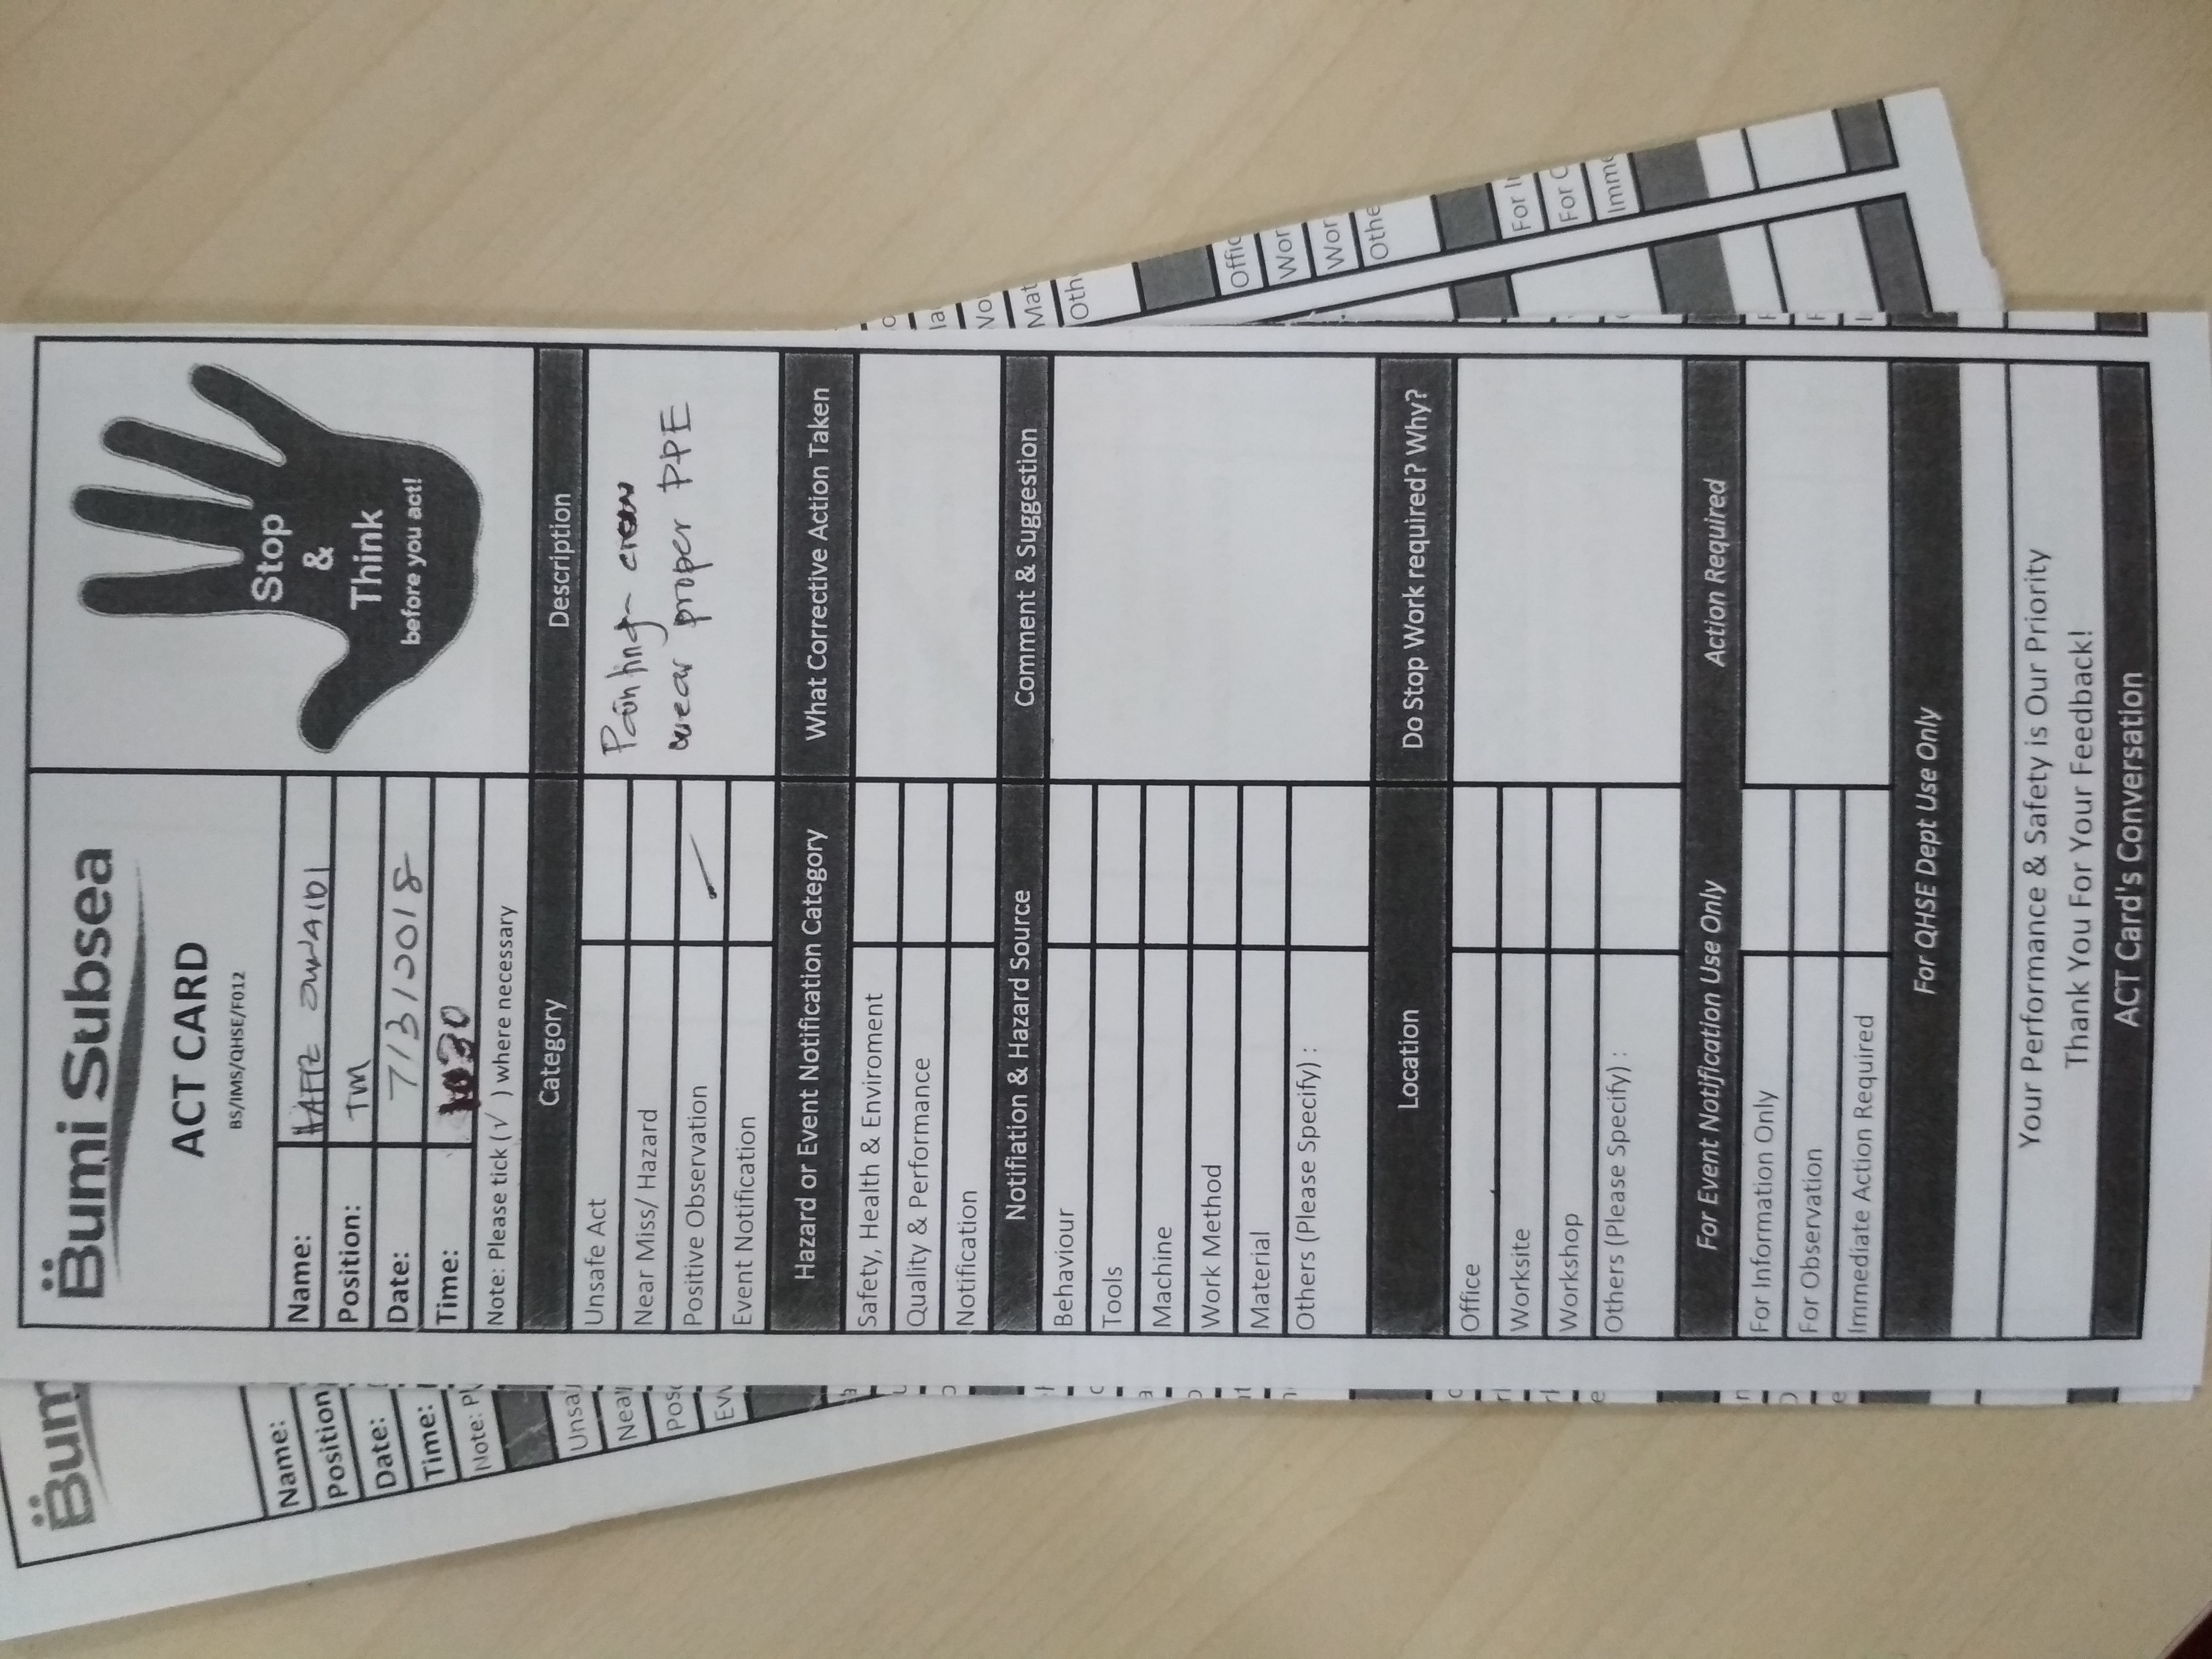 Bumi Subsea
ACT CARD
BS/IMS/QHSE/F012
Stop
&
Think
before you act!
Name: HAFIZ JUNAIDI
Position: TM
Date: 7/3/2018
Time: 30
Note: Please tick (√ ) where necessary
Category Description
Unsafe Act
Near Miss/ Hazard
Positive Observation ✓
Event Notification
Painting crew
wear proper PPE
Hazard or Event Notification Category What Corrective Action Taken
Safety, Health & Enviroment
Quality & Performance
Notification
Notifiation & Hazard Source Comment & Suggestion
Behaviour
Tools
Machine
Work Method
Material
Others (Please Specify) :
Location Do Stop Work required? Why?
Office
Worksite
Workshop
Others (Please Specify) :
For Event Notification Use Only Action Required
For Information Only
For Observation
Immediate Action Required
For QHSE Dept Use Only
Your Performance & Safety is Our Priority
Thank You For Your Feedback!
ACT Card's Conversation
Bum
Name:
Position
Date:
Time:
Note: P
Unsa
Near
Pos
Ev
Mat
Oth
Offic
Wor
Wor
Othe
For I
For
Imme